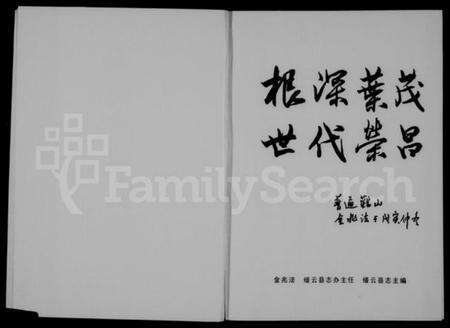 根深葉茂
世代榮昌
金兆法 缙云县志办主任 缙云县志主编
FamilySearch